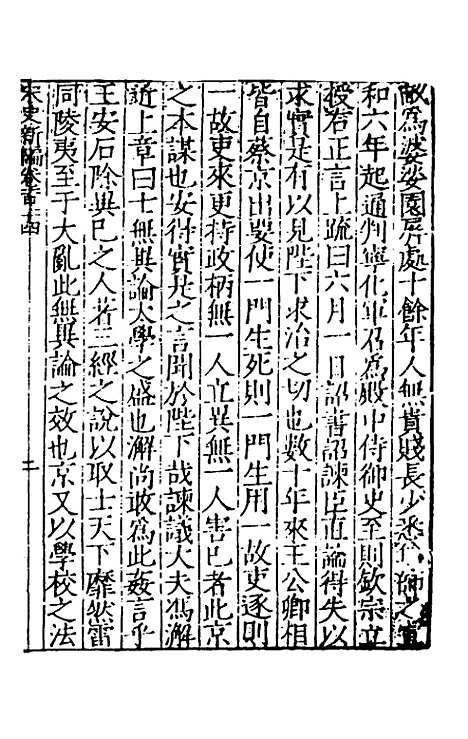 畝爲婆娑園屏處十餘年人無貴賤長少悉師之宣
和六年起通判寧化軍召爲殿中侍御史至則欽宗立
授右正言上疏曰六月一日詔書詔諫臣直論得失以
求實是有以見陛下求治之切也數十年來王公卿相
皆自蔡京出要使一門生死則一門生用一故吏逐則
一故吏來更持政柄無一人立異無一人害己者此京
之本謀也安得實是之言聞於陛下哉諫議大夫馮澥
近上章曰士無異論太學之盛也澥尚敢爲此姦言乎
王安石除異己之人著三經之說以取士天下靡然雷
同陵夷至于大亂此無異論之效也京又以學校之法
宋史新編卷一百二十四
二